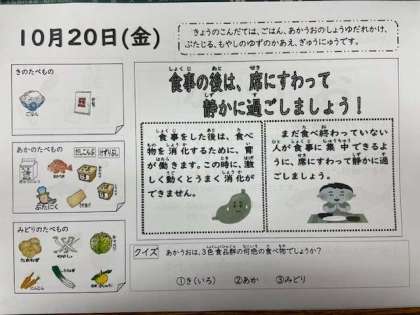 10月20日(金)
きょうのこんだては、ごはん、あかうおのしょうゆだれかけ、
ぶたじる、もやしのゆずのかあえ、ぎゅうにゅうです。
きのたべもの
ごはん
食事の後は、席にすわって
静かに過ごしましょう!
あかのたべもの
だしこんぶ
けずりぶし
ぶたにく
食事をした後は、食べ
物を消化するために、胃
が働きます。この時に、激
しく動くとうまく消化が
できません。
まだ食べ終わっていない
人が食事に集中できるよ
うに、席にすわって静かに過
ごしましょう。
みどりのたべもの
たまねぎ
もやし
にんじん
クイズ あかうおは、3色食品群の何色の食べ物でしょうか?
①き(いろ) ②あか ③みどり